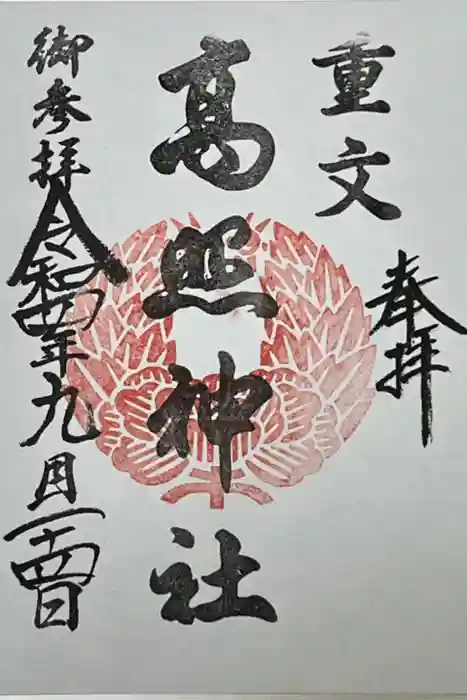 重文
奉拝
髙照神社
御参拝
令和四年九月二十四日